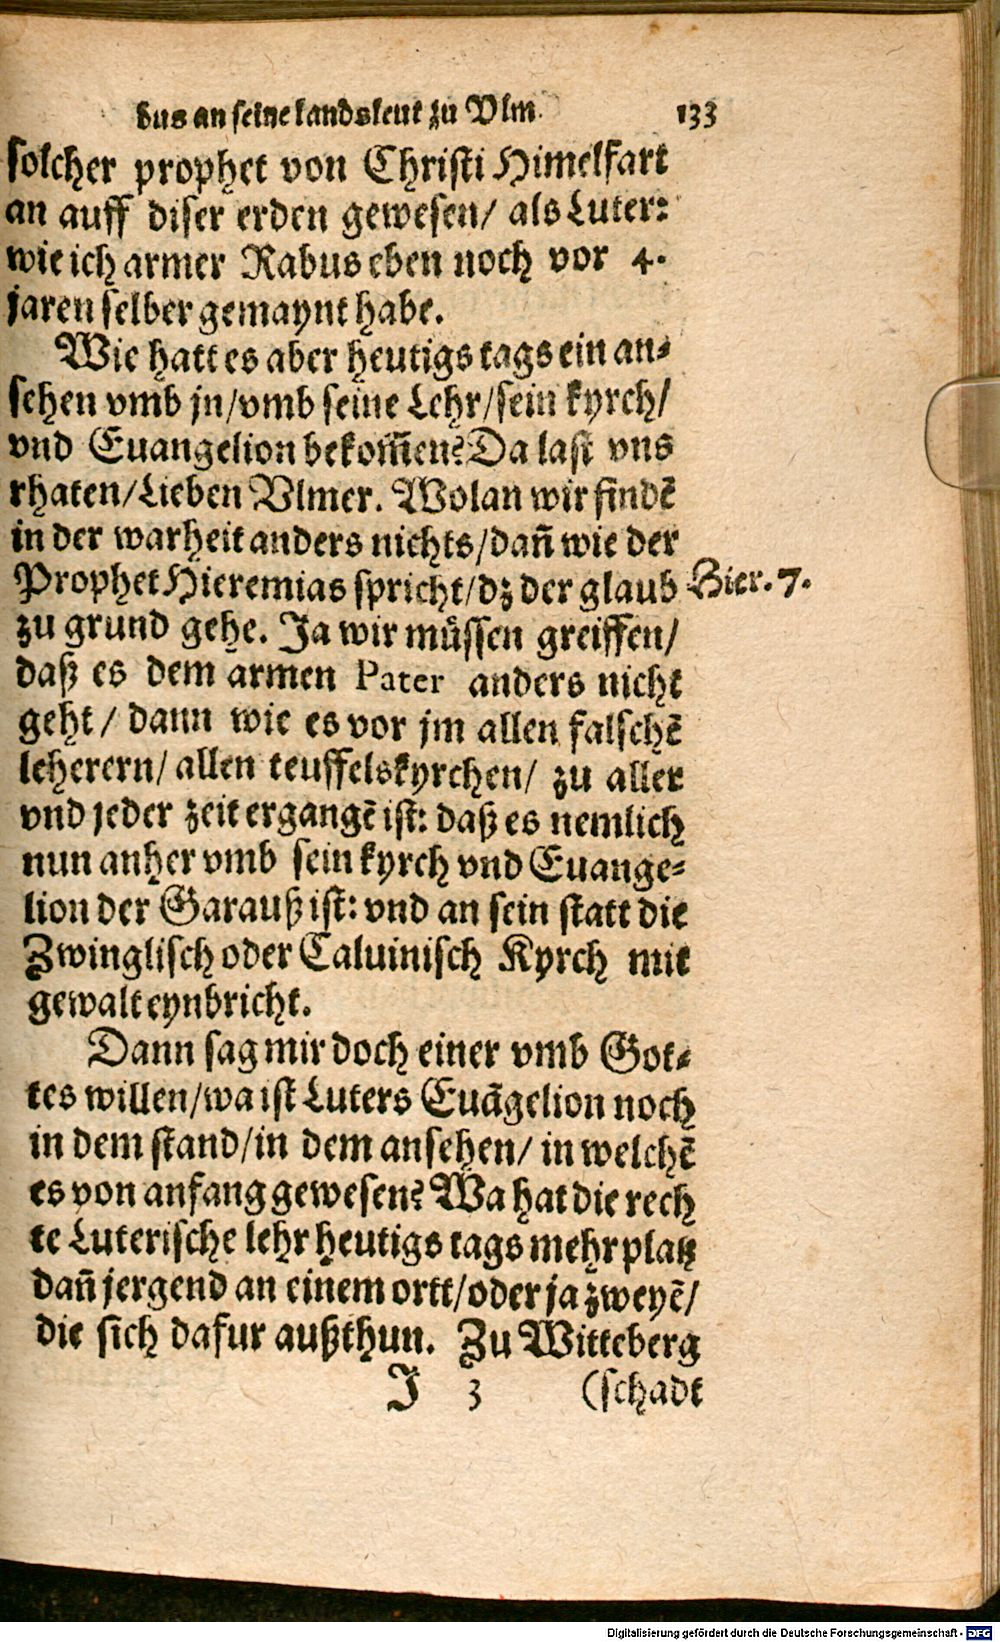 bus an seine landsleut zu Vlm 133
solcher prophet von Christi Himelfart
an auff diser erden gewesen/ als Luter:
wie ich armer Rabus eben noch vor 4.
jaren selber gemaynt habe.
Wie hatt es aber heutigs tags ein an⸗
sehen vmb jn/vmb seine Lehr/sein kyrch/
vnd Euangelion bekom̃en? Da last vns
rhaten/Lieben Vlmer. Wolan wir findẽ
in der warheit anders nichts/dañ wie der
Prophet Hieremias spricht/dz der glaub
Hier. 7.
zu grund gehe. Ja wir müssen greiffen/
daß es dem armen Pater anders nicht
geht/ dann wie es vor jm allen falschẽ
leherern/ allen teuffelskyrchen/ zu aller
vnd jeder zeit ergangẽ ist: daß es nemlich
nun anher vmb sein kyrch vnd Euange⸗
lion der Garauß ist: vnd an sein statt die
Zwinglisch oder Caluinisch Kyrch mit
gewalt eynbricht.
Dann sag mir doch einer vmb Got⸗
tes willen/wa ist Luters Euãgelion noch
in dem stand/in dem ansehen/ in welchẽ
es von anfang gewesen? Wa hat die rech
te Luterische lehr heutigs tags mehr platz
dañ jergend an einem ortt/oder ja zweyẽ/
die sich dafur außthun. Zu Witteberg
J 3 (schadt
Digitalisierung gefördert durch die Deutsche Forschungsgemeinschaft - DFG